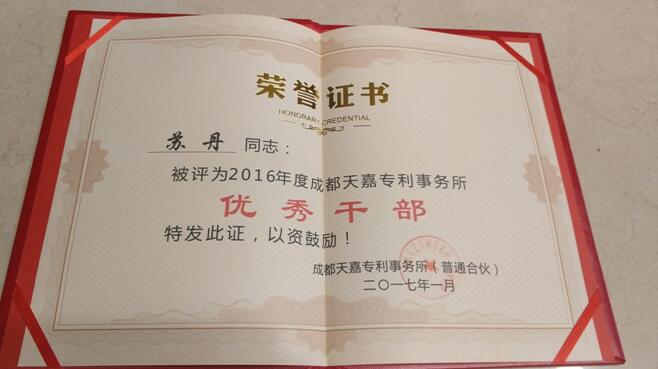 荣誉证书
HONORARY CREDENTIAL
苏丹 同志：
被评为2016年度成都天嘉专利事务所
优秀干部
特发此证，以资鼓励！
成都天嘉专利事务所（普通合伙）
二〇一七年一月